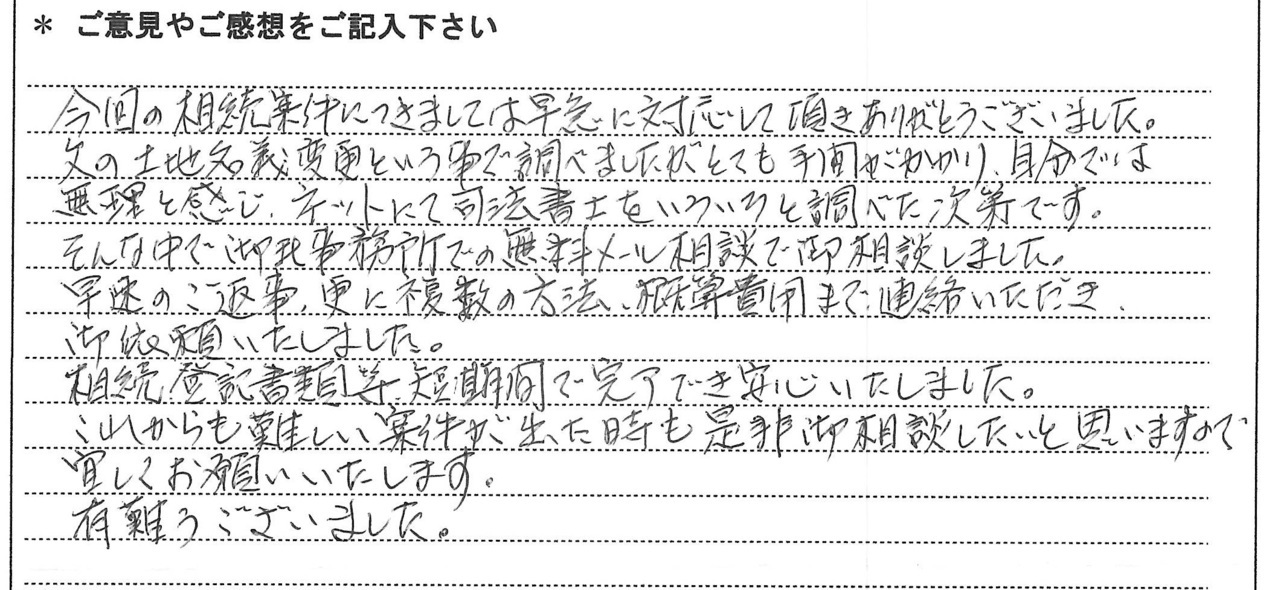 ＊ ご意見やご感想をご記入下さい
今回の相続案件につきましては早急に対応して頂きありがとうございました。
父の土地名義変更という事で調べましたがとても手間がかかり、自分では
無理と感じ、ネットにて司法書士をいろいろと調べた次第です。
そんな中で御社事務所での無料メール相談で御相談しました。
早速のご返事、更に複数の方法、概算費用まで連絡いただき、
御依頼いたしました。
相続登記書類等、短期間で完了でき安心いたしました。
これからも難しい案件が出た時も是非御相談したいと思いますので
宜しくお願いいたします。
有難うございました。